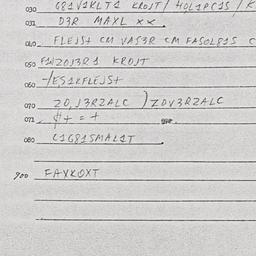 030 G81V1KLT1 KROJT/HQL1PC1S/K
031 D3R MAXL XX.
040 FLEJST CM VAS3R CM FASOL81S C
050 FWZOJ3R1 KROJT
060 -/ES1KFLEJST
070 ZO,J3RZALC )ZOV3RZALC
071 $+ = +
080 C1G81SMAL1T.
900 FAVKOXT